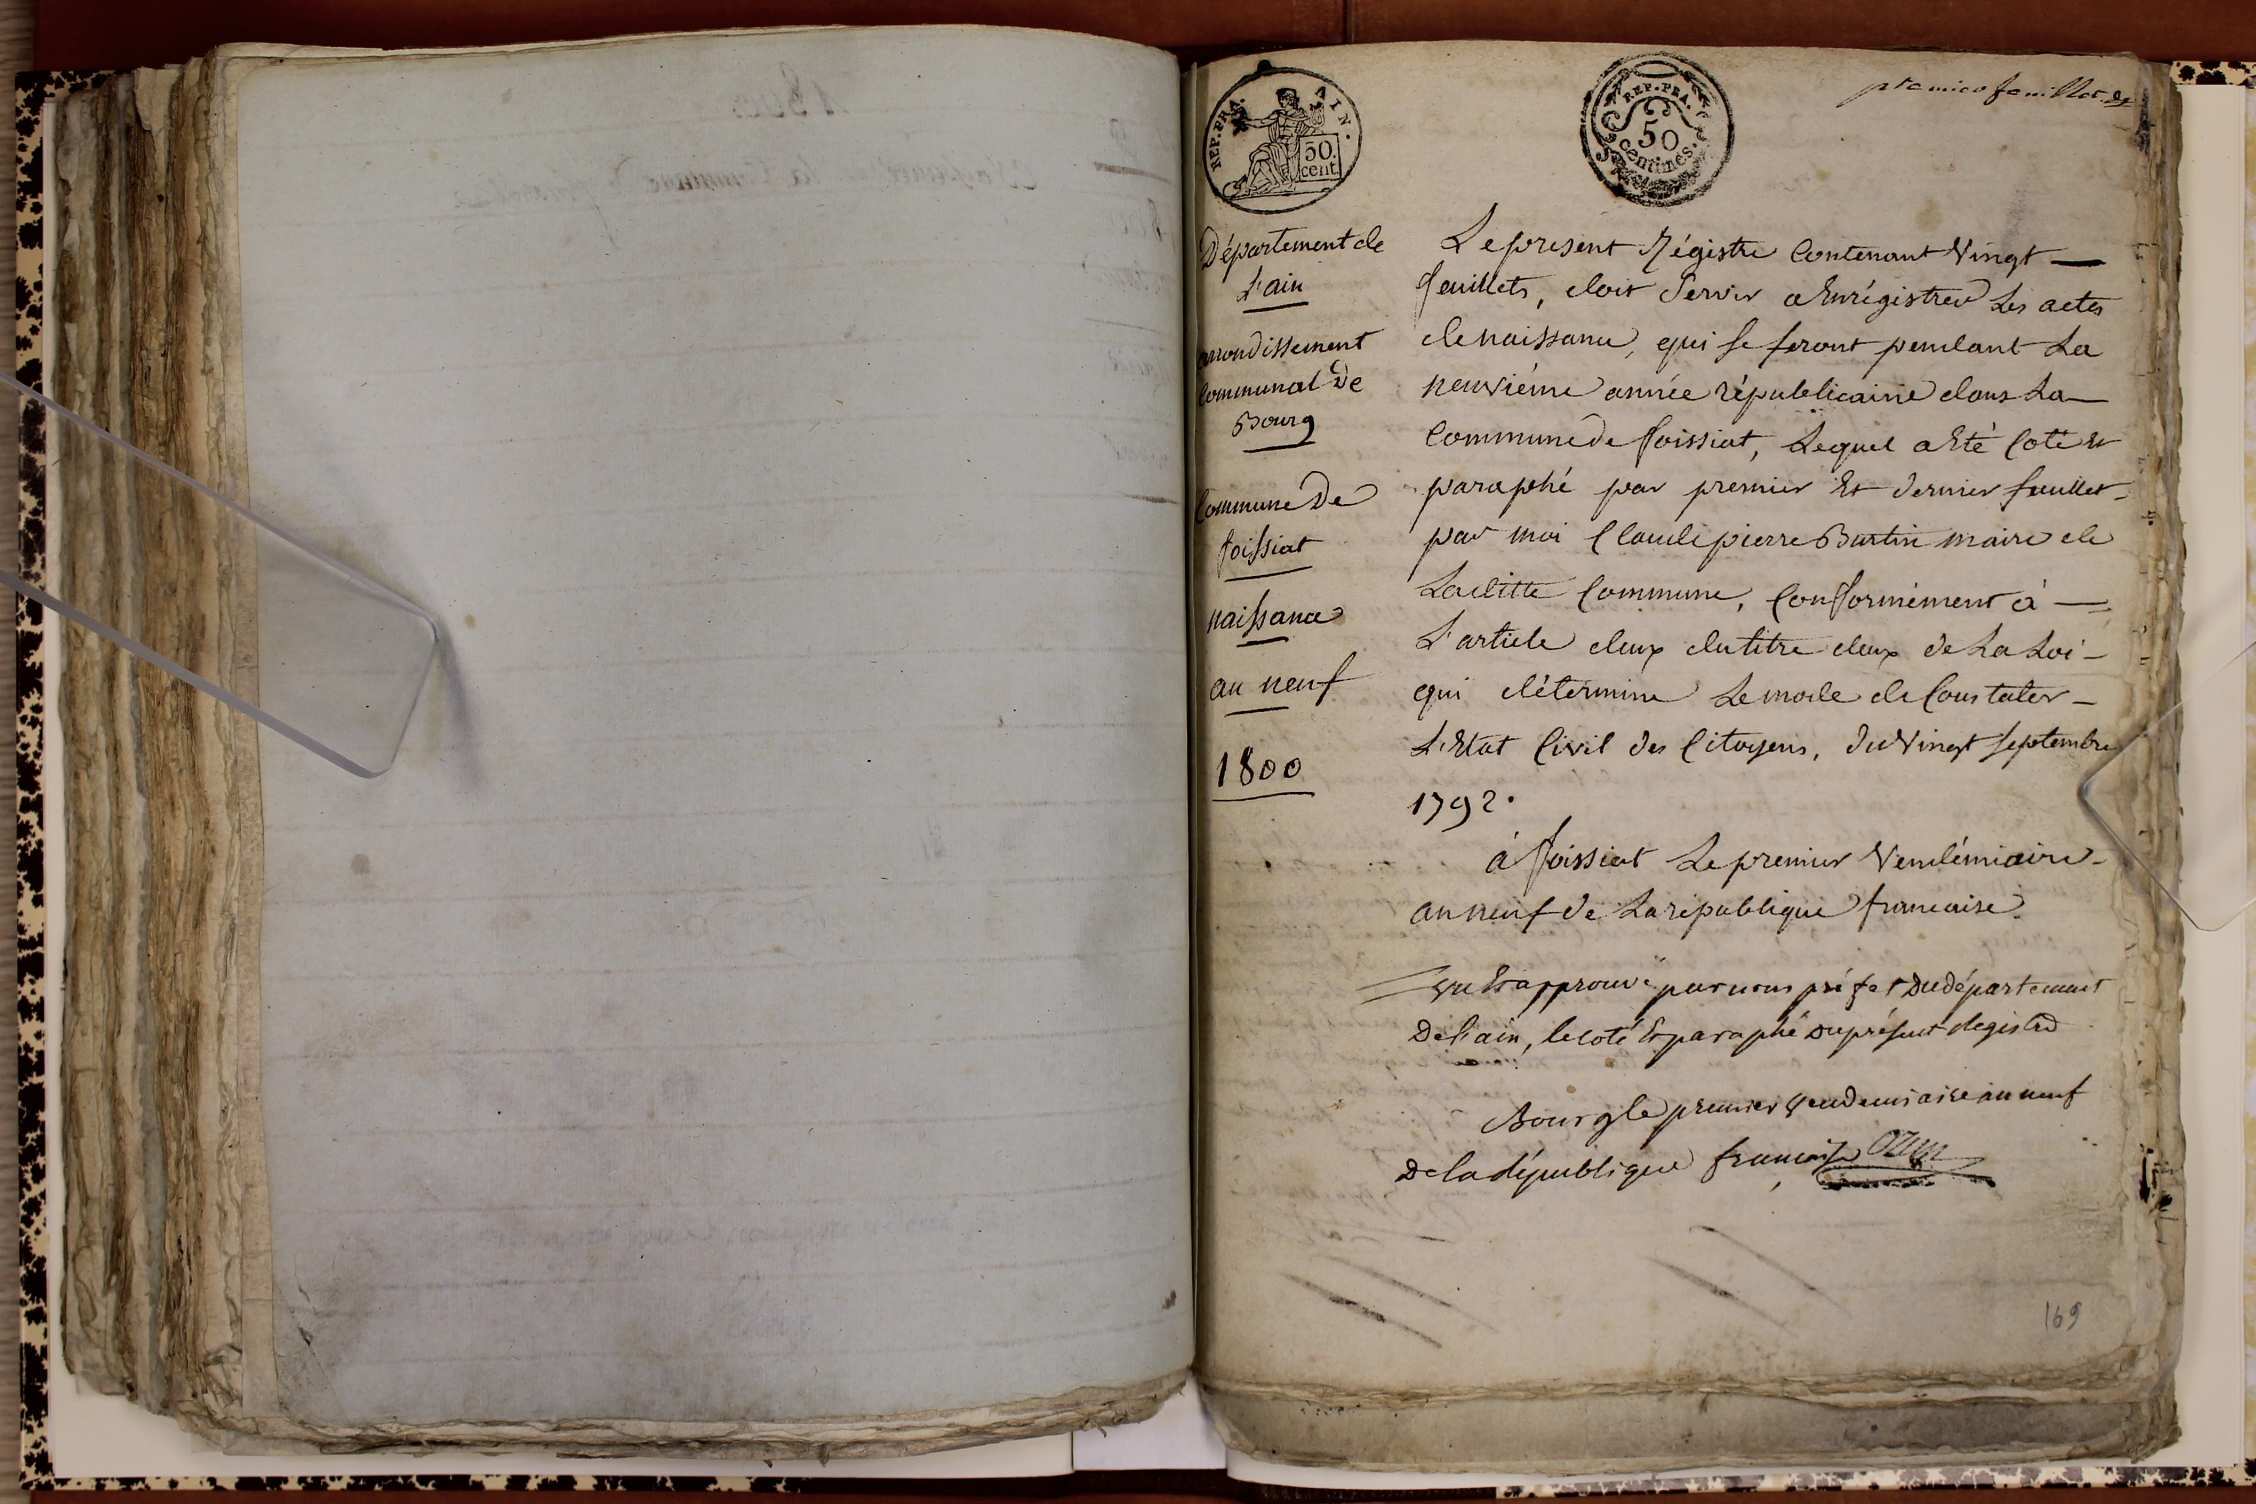 REP. FRA. AIN.
50.
cent.
REP. FRA.
50
centimes.
premier feuillet
Département de
L'ain
arrondissement
Communal De
Bourg
Commune De
foissiat
naissance
an neuf
1800
Le present Régistre Contenant Vingt —
feuillets, doit Servir a Enrégistrer Les actes
de naissance, qui se feront pendant La
neuviéme année républicaine dans La —
Commune de foissiat, Lequel a Eté Coté Et
paraphé par premier Et dernier feuillet -
par moi Claude pierre Burtin maire de
Laditte Commune, Conformément à —
L'article deux du titre deux de La Loi -
qui détermine Le mode de Constater -
L'Etat Civil des Citoyens, du Vingt septembre
1792.
à foissiat Le premier Vendémiaire -
an neuf de La république francaise.
Vu Et approuvé par nous préfet Du département
De l'ain, le coté Et paraphé Du présent Registre
Bourg le premier Vendemiaire an neuf
De la République française Ozun
169